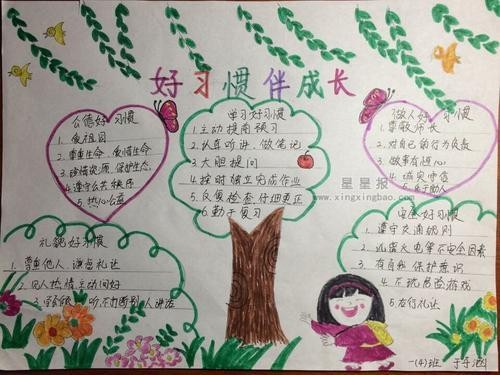 好习惯伴成长
公德好习惯
1.爱祖国
2.尊重生命、爱惜生命
3.珍惜资源、保护生态
4.遵守公共秩序
5.热心公益
学习好习惯
1.主动提前预习
2.认真听讲、做笔记
3.大胆提问
4.按时独立完成作业
5.反复检查仔细更正
6.勤于复习
做人好习惯
1.尊敬师长
2.对自己的行为负责
3.做事有恒心
4.诚实守信
5.乐于助人
星星报
www.xingxingbao.com
礼貌好习惯
1.尊重他人、谦虚礼让
2.见人热情主动问好
听 不打断别人讲话
安全好习惯
1.遵守交通规则
2.玩 火电等不安全因素
3.有自我保护意识
4.不玩危险游戏
5.右行礼让
一(4)班 于